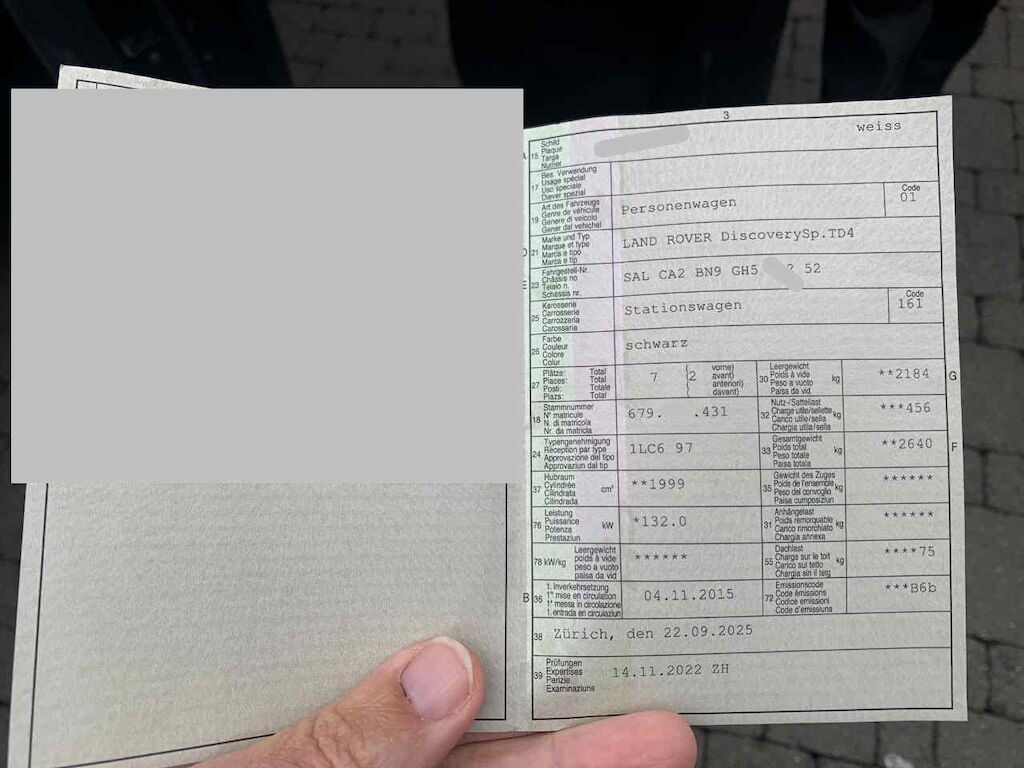 3
A 15 Schild
Plaque
Targa
Numer
weiss
17 Bes. Verwendung
Usage spécial
Uso speciale
Diever spezial
19 Art des Fahrzeugs
Genre de véhicule
Genere di veicolo
Gener dal vehichel
Personenwagen
Code
01
D 21 Marke und Typ
Marque et type
Marca e tipo
Marca e tip
LAND ROVER DiscoverySp.TD4
E 23 Fahrgestell-Nr.
Châssis no
Telaio n.
Schassis nr.
SAL CA2 BN9 GH5 2 52
25 Karosserie
Carrosserie
Carrozzeria
Carossaria
Stationswagen
Code
161
26 Farbe
Couleur
Colore
Colur
schwarz
27 Plätze: Total
Places: Total
Posti: Totale
Plazs: Total
7 (2 vorne)
avant)
anteriori)
davant)
30 Leergewicht
Poids à vide kg
Peso a vuoto
Paisa da vid
**2184 G
18 Stammnummer
N° matricule
N. di matricola
Nr. da matricla
679. .431
32 Nutz-/Sattellast
Charge utile/sellette kg
Carico utile/sella
Chargia utila/sella
***456
24 Typengenehmigung
Réception par type
Approvazione del tipo
Approvaziun dal tip
1LC6 97
33 Gesamtgewicht
Poids total kg
Peso totale
Paisa totala
**2640 F
37 Hubraum
Cylindrée cm³
Cilindrata
Cilindrada
**1999
35 Gewicht des Zuges
Poids de l'ensemble kg
Peso del convoglio
Paisa cumposiziun
******
76 Leistung
Puissance kW
Potenza
Prestaziun
*132.0
31 Anhängelast
Poids remorquable kg
Carico rimorchiato
Chargia annexa
******
78 kW/kg Leergewicht
poids à vide
peso a vuoto
paisa da vid
******
55 Dachlast
Charge sur le toit kg
Carico sul tetto
Chargia sin il tetg
****75
B 36 1. Inverkehrsetzung
1re mise en circulation
1a messa in circolazione
1. entrada en circulaziun
04.11.2015
72 Emissionscode
Code émissions
Codice emissioni
Code d'emissiuns
***B6b
38 Zürich, den 22.09.2025
39 Prüfungen
Expertises
Perizie
Examinaziuns
14.11.2022 ZH